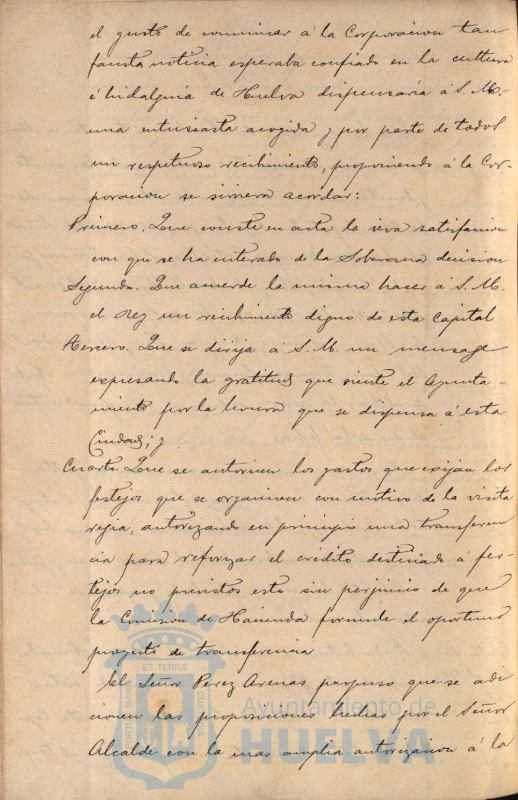 el gusto de comunicar á la Corporacion tan
fausta noticia esperaba confiado en la cultura
é hidalguía de Huelva dispensaría á S. M.
una entusiasta acogida y por parte de todos
un respetuoso recibimiento, proponiendo á la Cor-
poracion se sirviera acordar:
Primero. Que conste en acta la viva satisfaccion
con que se ha enterado de la Soberana decision
Segundo. Que acuerde la misma hacer á S. M.
el Rey un recibimiento digno de esta Capital
Tercero. Que se dirija á S. M. un mensage
expresando la gratitud que siente el Ayunta-
miento por la honra que se dispensa á esta
Ciudad; y
Cuarto. Que se autoricen los gastos que exijan los
festejos que se organicen con motivo de la visita
regia, autorizando en principio una transferen
cia para reforzar el crédito destinado á fes-
tejos no previstos esto sin perjuicio de que
la Comision de Hacienda formule el oportuno
proyecto de transferencia
El Señor Perez Arenas propuso que se adi
cionen las proposiciones hechas por el Señor
Alcalde con la mas amplia autorizacion á la
ET TERRÆ
Ayuntamiento de
HUELVA